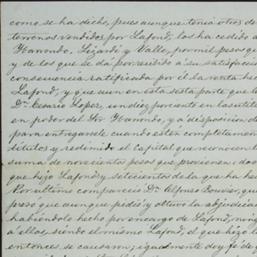 como se ha dicho, pues aunque tenia otros de
terrenos vendidos por Lafond, los ha cedido a
Ysarondo, Lizardi y Valle, por mil pesos q
y de los que se da por recibido á su satisfac
consecuencia ratificada por él la venta he
Lafond, y que aun en esta sexta parte que le
Dn. Cesario Lopez, un diez por ciento en las util
en poder del Sor. Ysarondo, y á disposicion de
para entregarsele cuando esten completamen
títulos y redimido el capital que reconocen t
suma de novecientos pesos que provienen, do
que hijo Lafond y setecientos de la que ha he
Por último compareció Dn. Alfonso Bouvier, que
presó que aunque pidió y obtuvo la adjudicac
habiendolo hecho por encargo de Lafond, ning
á ellos, siendo el mismo Lafond, el que hizo l
entonces se causaron; igualmente doy fé de q